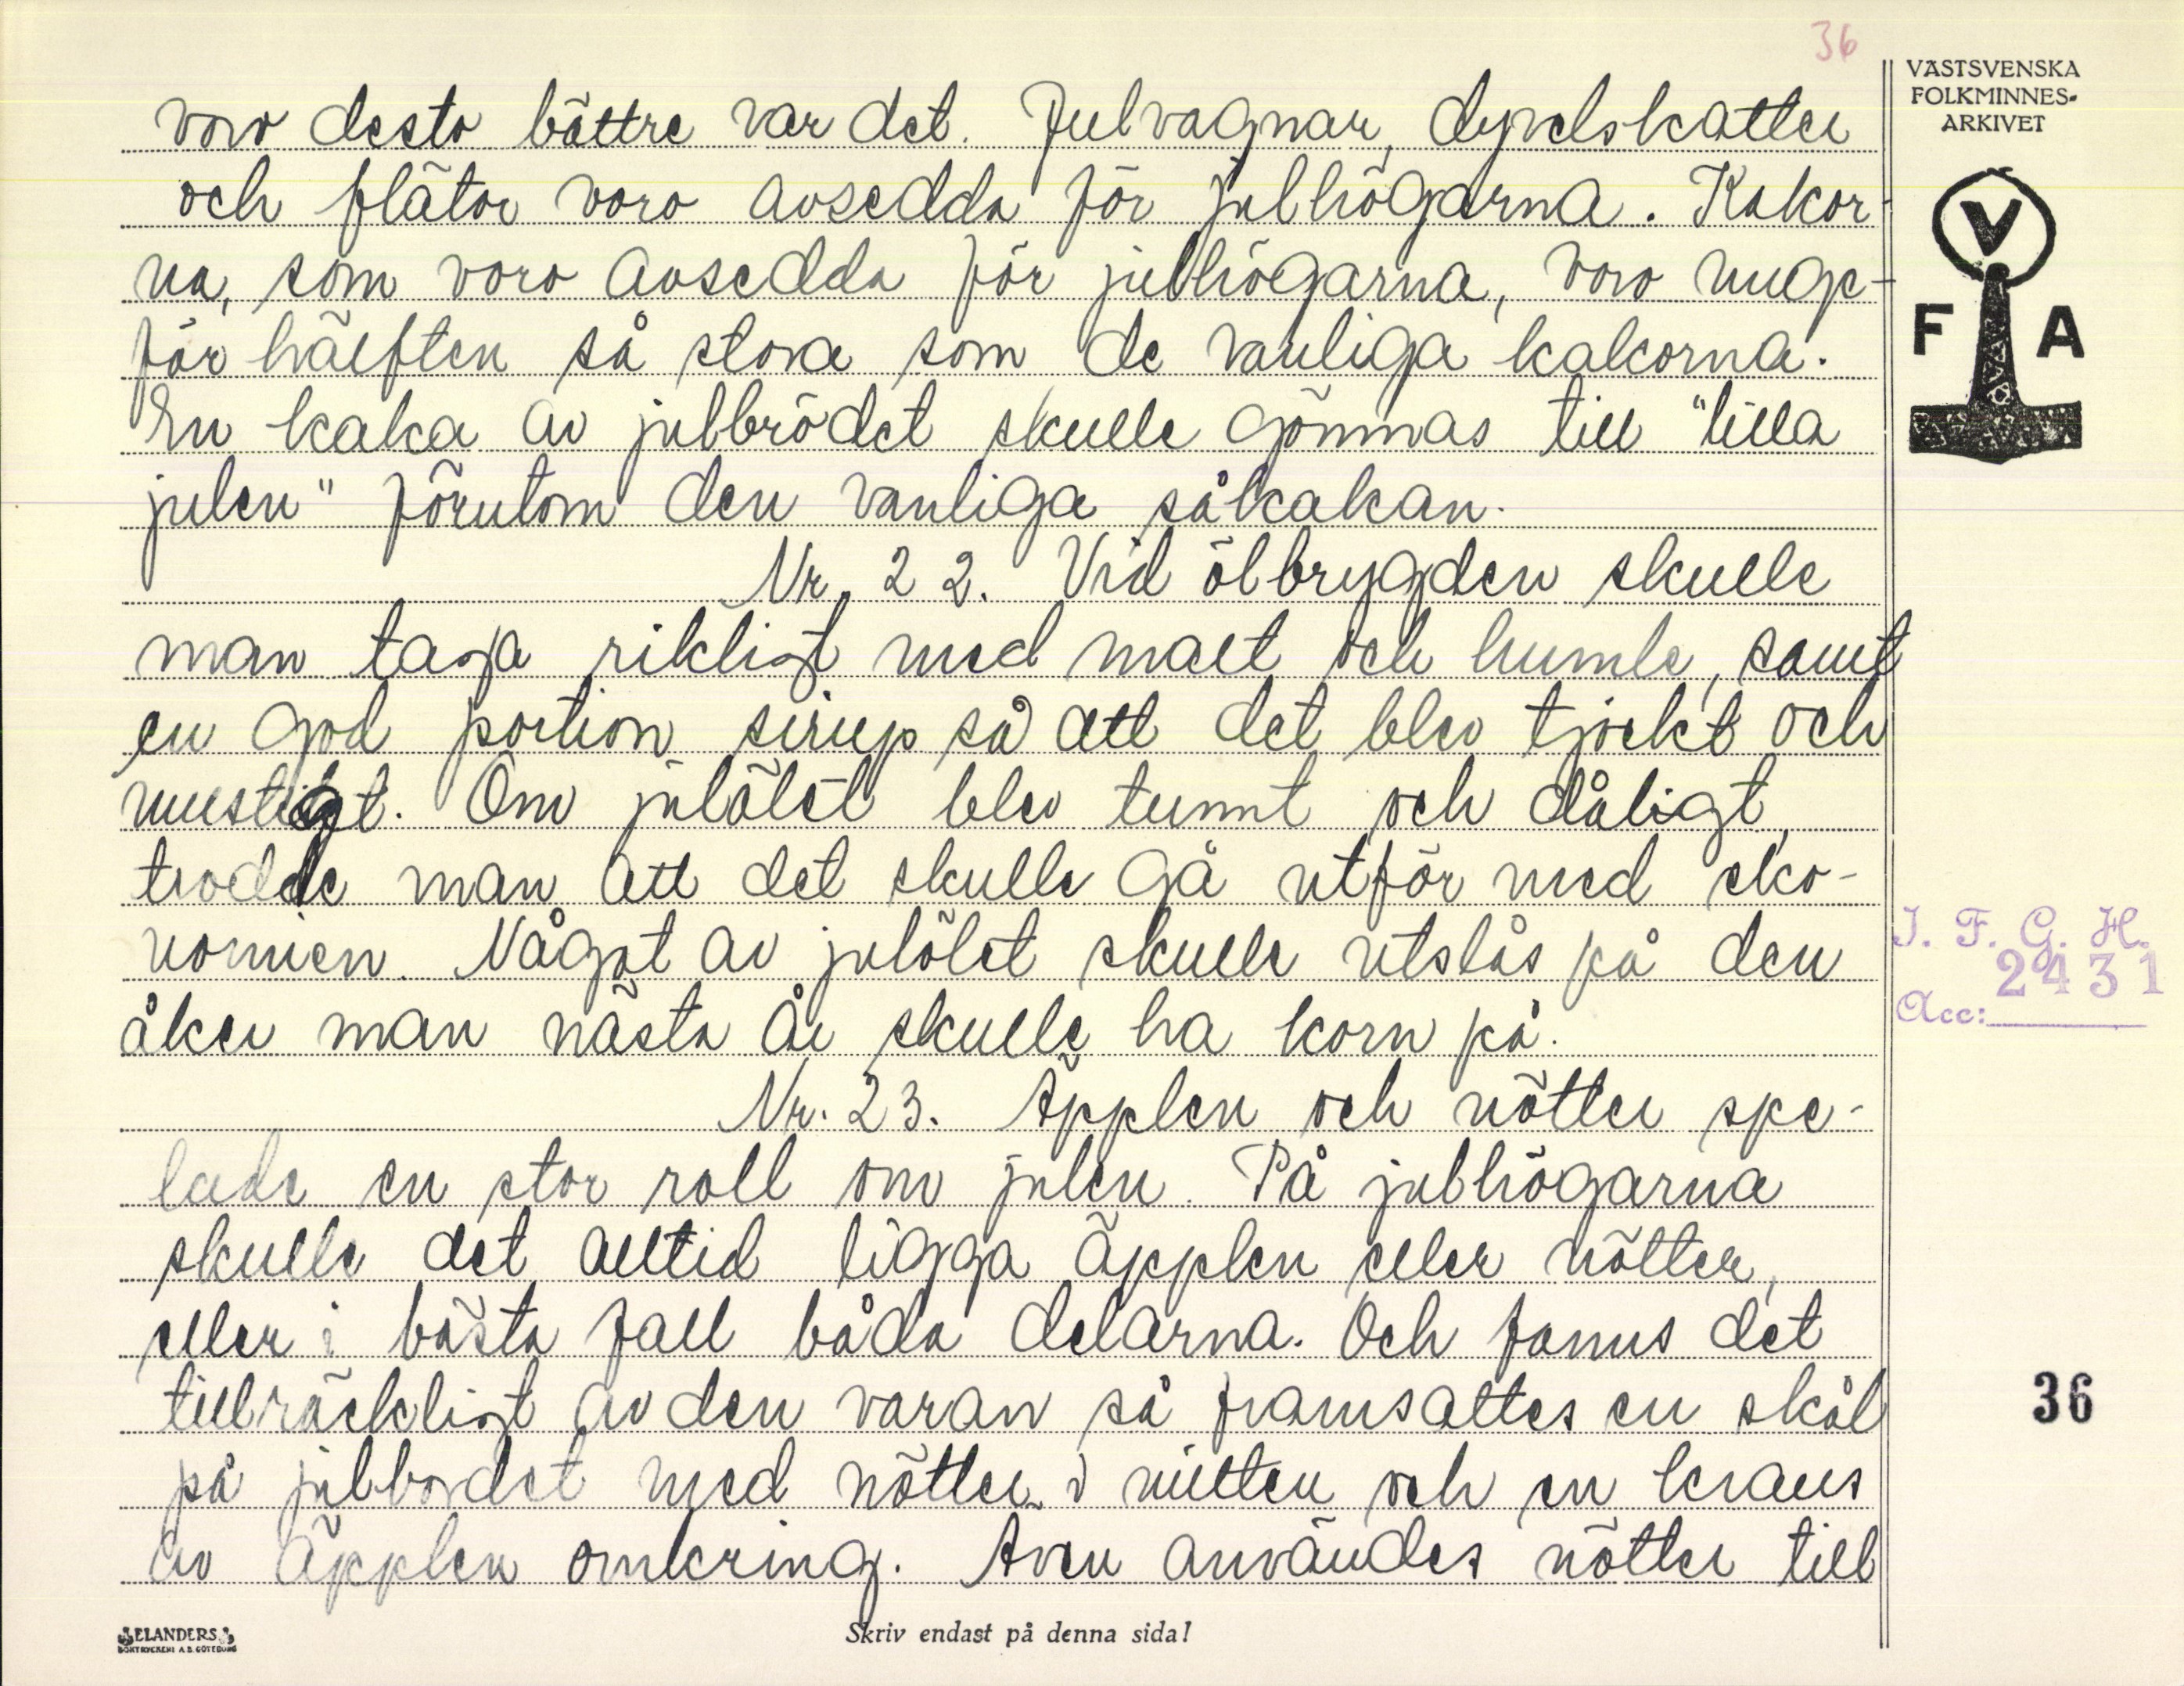 36
VÄSTSVENSKA
FOLKMINNES-
ARKIVET
V
F A
voro desto bättre var det. Julvagnar, dyvelskatter
och flätor voro avsedda för julhögarna. Kakor-
na, som voro avsedda för julhögarna, voro unge-
för hälften så stora som de vanliga kakorna.
En kaka av julbrödet skulle gömmas till "lilla
julen" förutom den vanliga såkakan.
Nr. 22. Vid ölbrygden skulle
man taga rikligt med malt och humle, samt
en god portion sirup så att det blev tjockt och
mustigt. Om julölet blev tunnt och dåligt,
trodde man att det skulle gå utför med eko-
nomien. Något av julölet skulle utslås på den
åker man nästa år skulle ha korn på.
Nr. 23. Äpplen och nötter spe-
lade en stor roll om julen. På julhögarna
skulle det alltid ligga äpplen eller nötter,
eller i bästa fall båda delarna. Och fanns det
tillräckligt av den varan så framsattes en skål
på julbordet med nötter i mitten och en krans
av äpplen omkring. Även användes nötter till
I. F. G. H.
2431
Acc:
36
ELANDERS
BOKTRYCKERI A.B. GÖTEBORG
Skriv endast på denna sida!